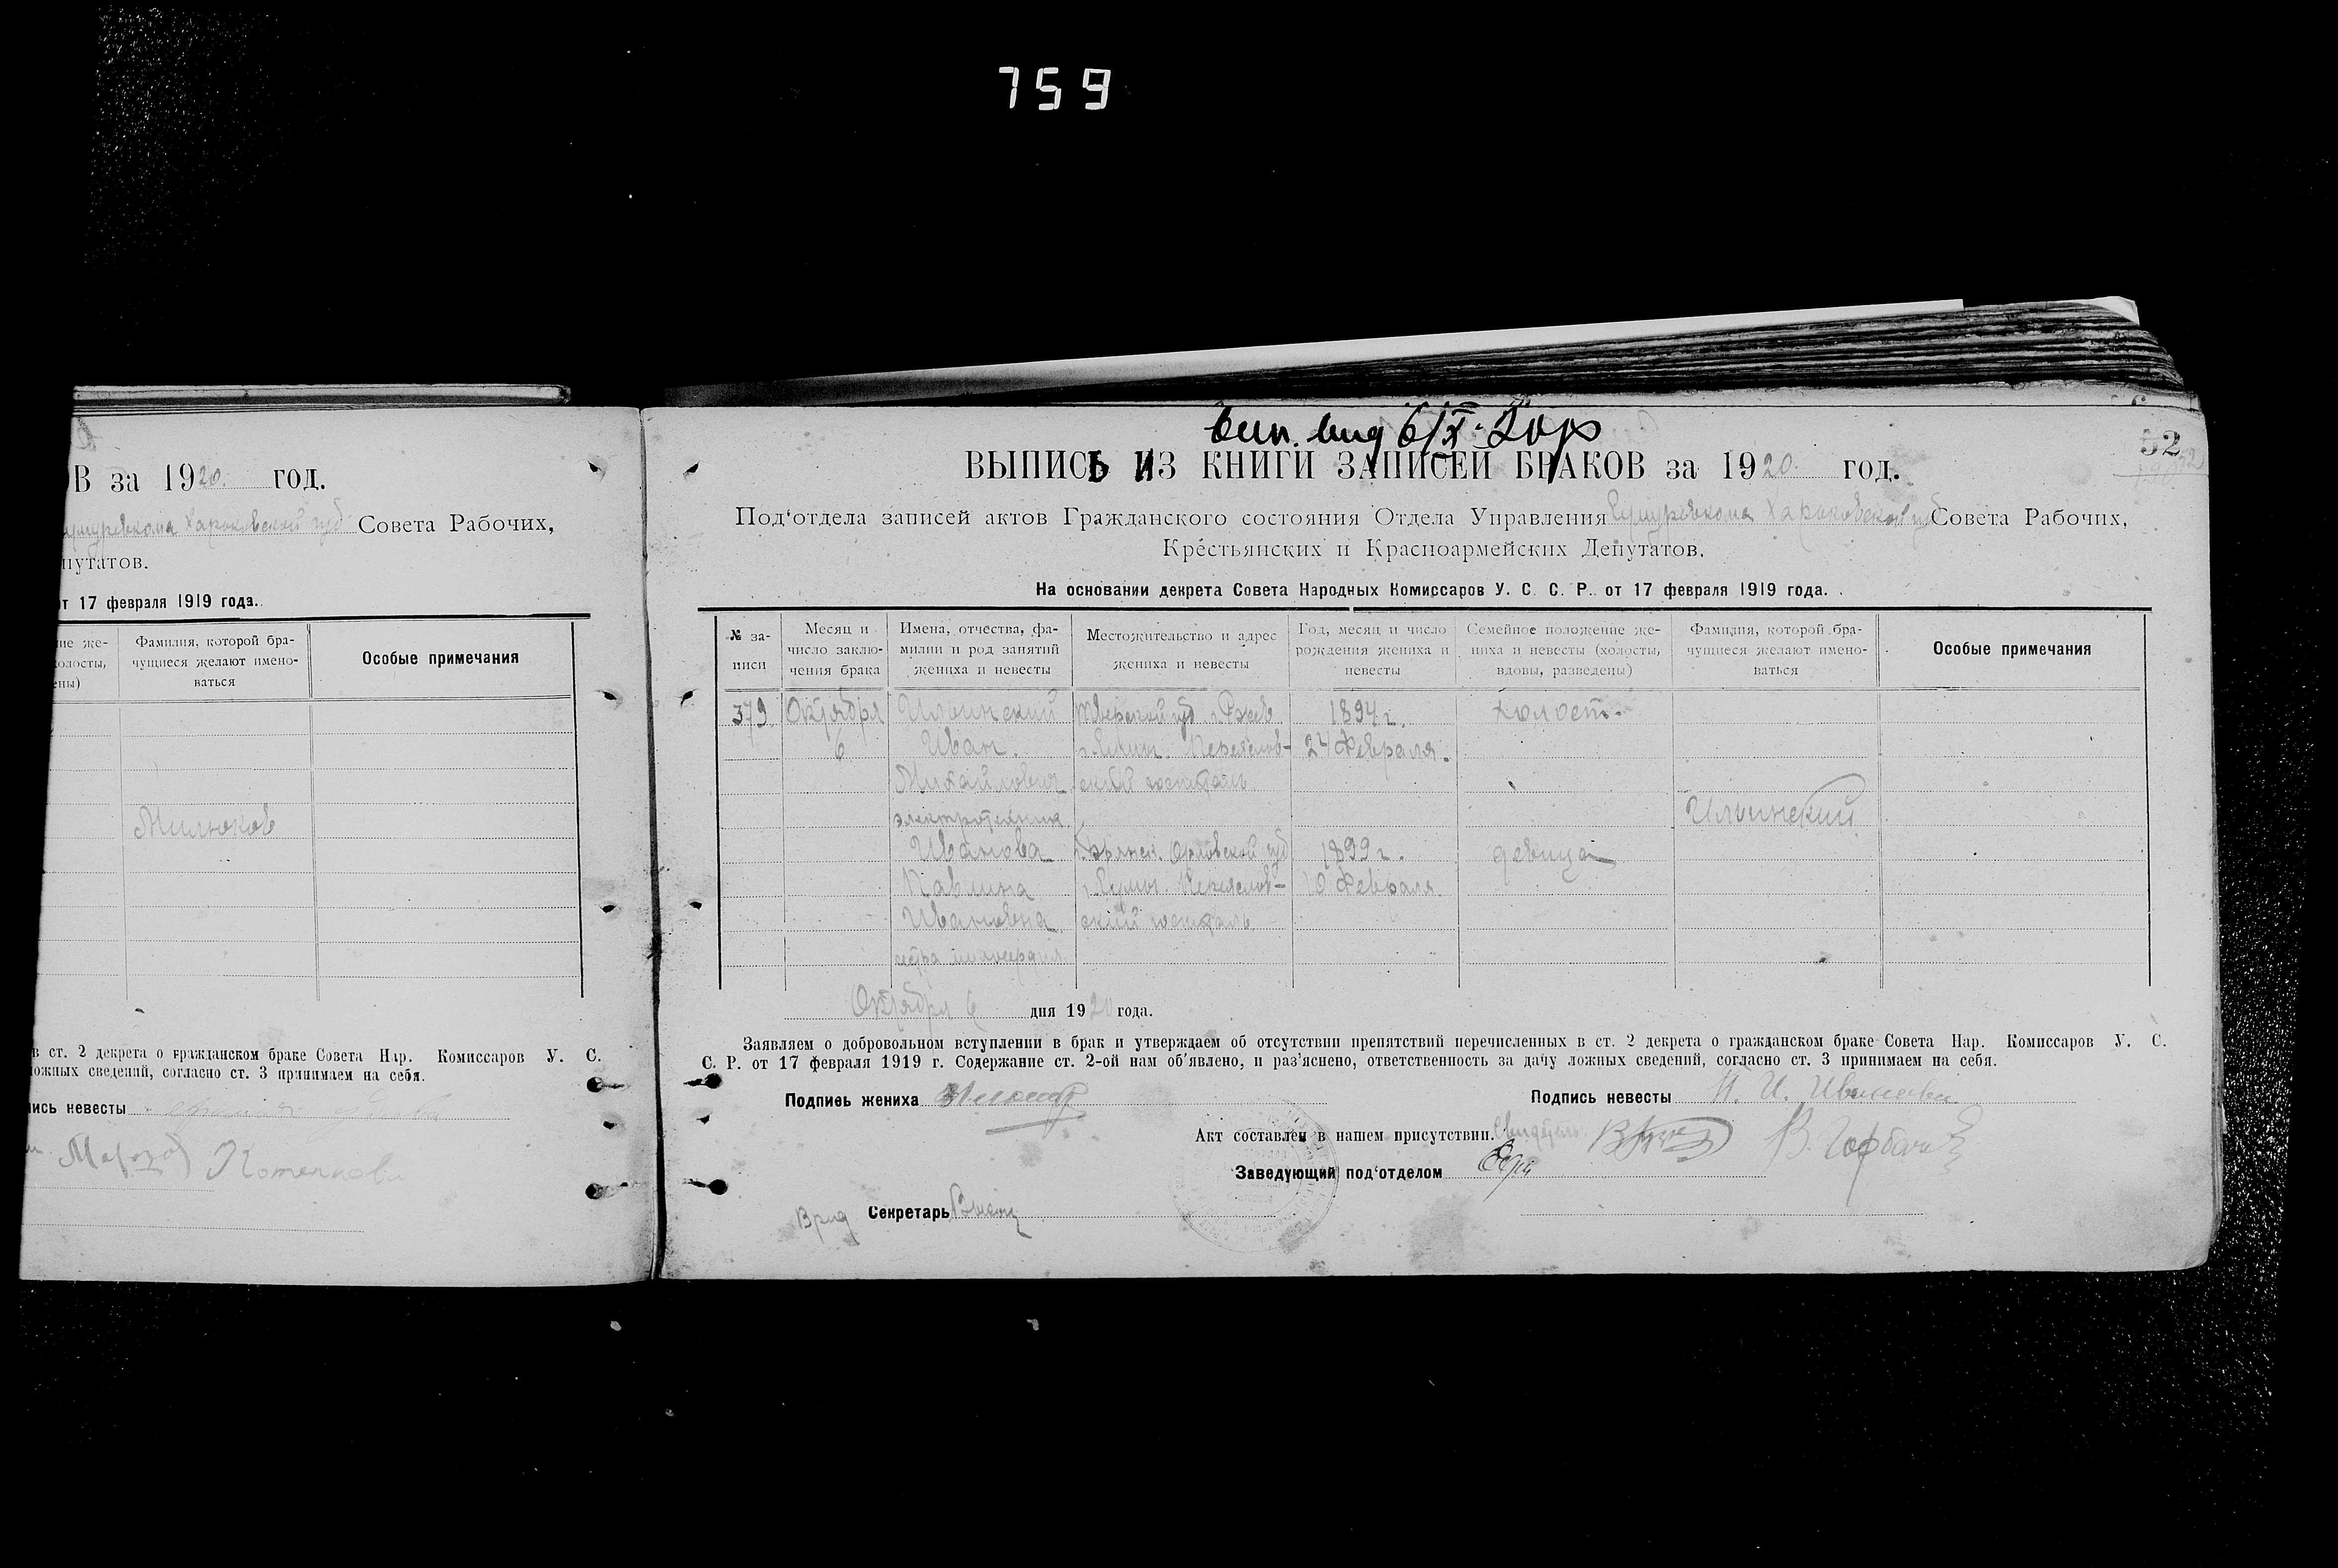 759
В за 1920. год.
Харьковской губ. Совета Рабочих,
путатов.
от 17 февраля 1919 года.
ие же-
холосты,
ены)
Фамилия, которой бра-
чущиеся желают имено-
ваться
Особые примечания
Милюков
в ст. 2 декрета о гражданском браке Совета Нар. Комиссаров У. С.
ложных сведений, согласно ст. 3 принимаем на себя.
пись невесты
52
6/X-20
ВЫПИСЬ ИЗ КНИГИ ЗАПИСЕЙ БРАКОВ за 1920. год.
Под'отдела записей актов Гражданского состояния Отдела Управления Харьковской губ Совета Рабочих,
Крестьянских и Красноармейских Депутатов.
На основании декрета Совета Народных Комиссаров У. С. С. Р. от 17 февраля 1919 года.
№ за-
писи
Месяц и
число заклю-
чения брака
Имена, отчества, фа-
милии и род занятий
жениха и невесты
Местожительство и адрес
жениха и невесты
Год, месяц и число
рождения жениха и
невесты
Семейное положение же-
ниха и невесты (холосты,
вдовы, разведены)
Фамилия, которой бра-
чущиеся желают имено-
ваться
Особые примечания
379 Октября Ильинский Тверской губ. г. Ржев 1894 г. холост.
6 Иван. 24 Февраля.
Михайлович ский госпиталь
электротехник Ильинский
Иванова Орловской губ 1899 г. девица
Павлина 10 Февраля
Ивановна ский госпиталь
сестра милосердия
Октября 6 дня 1920 года.
Заявляем о добровольном вступлении в брак и утверждаем об отсутствии препятствий перечисленных в ст. 2 декрета о гражданском браке Совета Нар. Комиссаров У. С.
С. Р. от 17 февраля 1919 г. Содержание ст. 2-ой нам об'явлено, и раз'яснено, ответственность за дачу ложных сведений, согласно ст. 3 принимаем на себя.
Подпись жениха
Подпись невесты П. И. Иванова
Акт составлен в нашем присутствии.
Заведующий под'отделом
Врид Секретарь